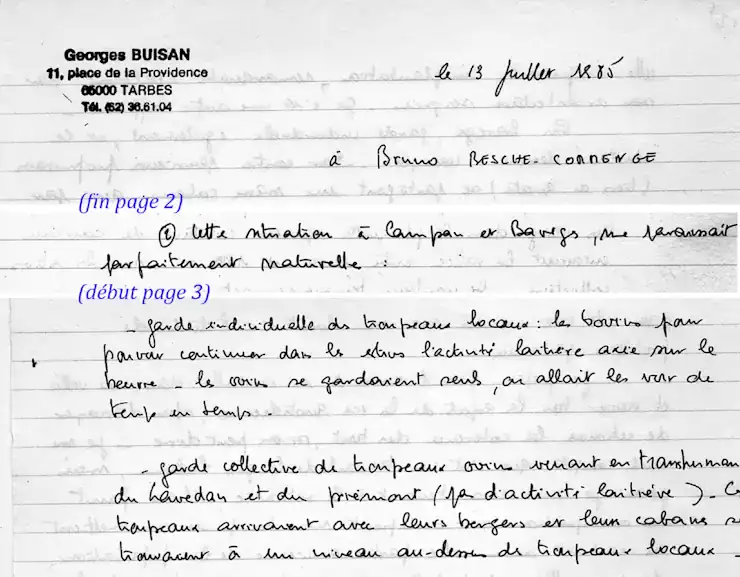 Georges BUISAN
11, place de la Providence
65000 TARBES
Tél. (62) 36.61.04
le 13 Juillet 1985
à Bruno BESCHE-COMMENGE
(fin page 2)
① Cette situation à Campan et Barèges, me paraissait
parfaitement naturelle :
(début page 3)
- garde individuelle des troupeaux locaux : les bovins pour
pouvoir continuer dans les estives l'activité laitière axée sur le
beurre - les ovins se gardaient seuls, on allait les voir de
temps en temps.
- garde collective de troupeaux ovins venant en transhuman
du Lavedan et du piémont (pas d'activité laitière). C
troupeaux arrivaient avec leurs bergers et leurs cabanes s
trouvaient à un niveau au-dessus des troupeaux locaux -